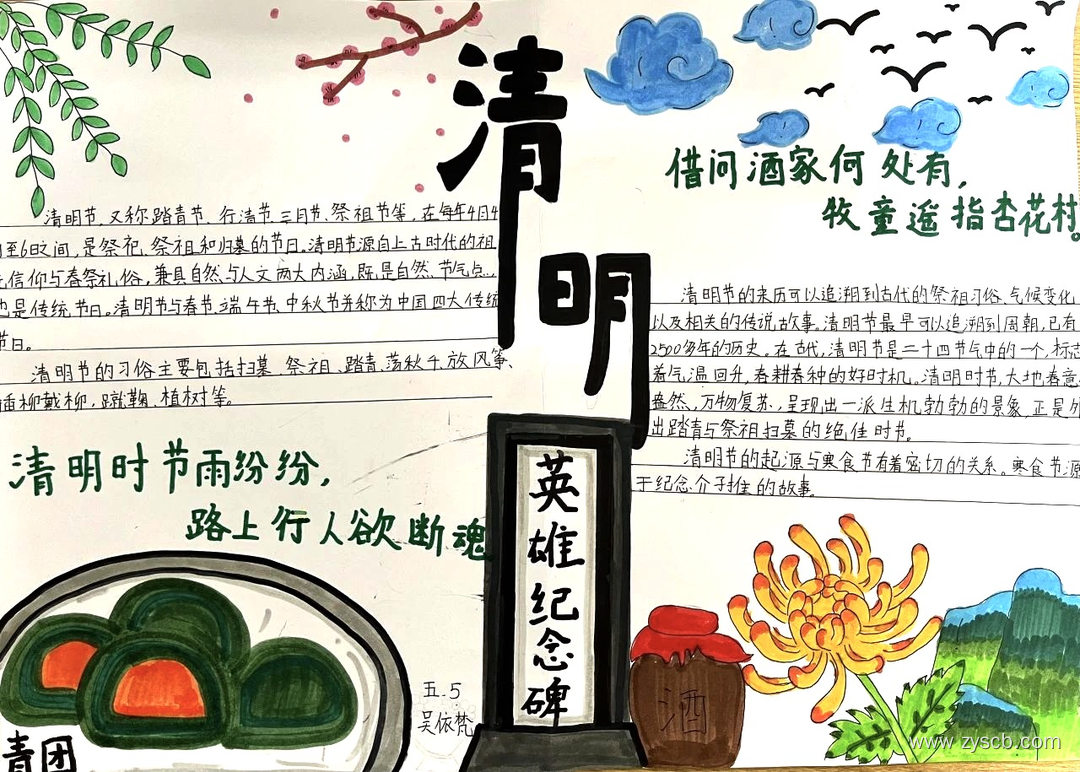 清明
清明节,又称踏青节、行清节、三月节、祭祖节等,在每年4月4
至6日之间,是祭祀、祭祖和扫墓的节日。清明节源自上古时代的祖
信仰与春祭礼俗,兼具自然与人文两大内涵,既是自然节气点,
也是传统节日。清明节与春节、端午节、中秋节并称为中国四大传统
节日。
清明节的习俗主要包括扫墓、祭祖、踏青、荡秋千、放风筝、
插柳戴柳,蹴鞠、植树等。
清明时节雨纷纷,
路上行人欲断魂
青团
五.5
吴依梵
英雄纪念碑
酒
借问酒家何处有,
牧童遥指杏花村。
清明节的来历可以追溯到古代的祭祖习俗、气候变化
以及相关的传说故事。清明节最早可以追溯到周朝,已有
2500多年的历史。在古代,清明节是二十四节气中的一个,标志
着气温回升,春耕春种的好时机。清明时节,大地春意
盎然,万物复苏,呈现出一派生机勃勃的景象,正是外
出踏青与祭祖扫墓的绝佳时节。
清明节的起源与寒食节有着密切的关系。寒食节源
于纪念介子推的故事。
www.zyscb.com